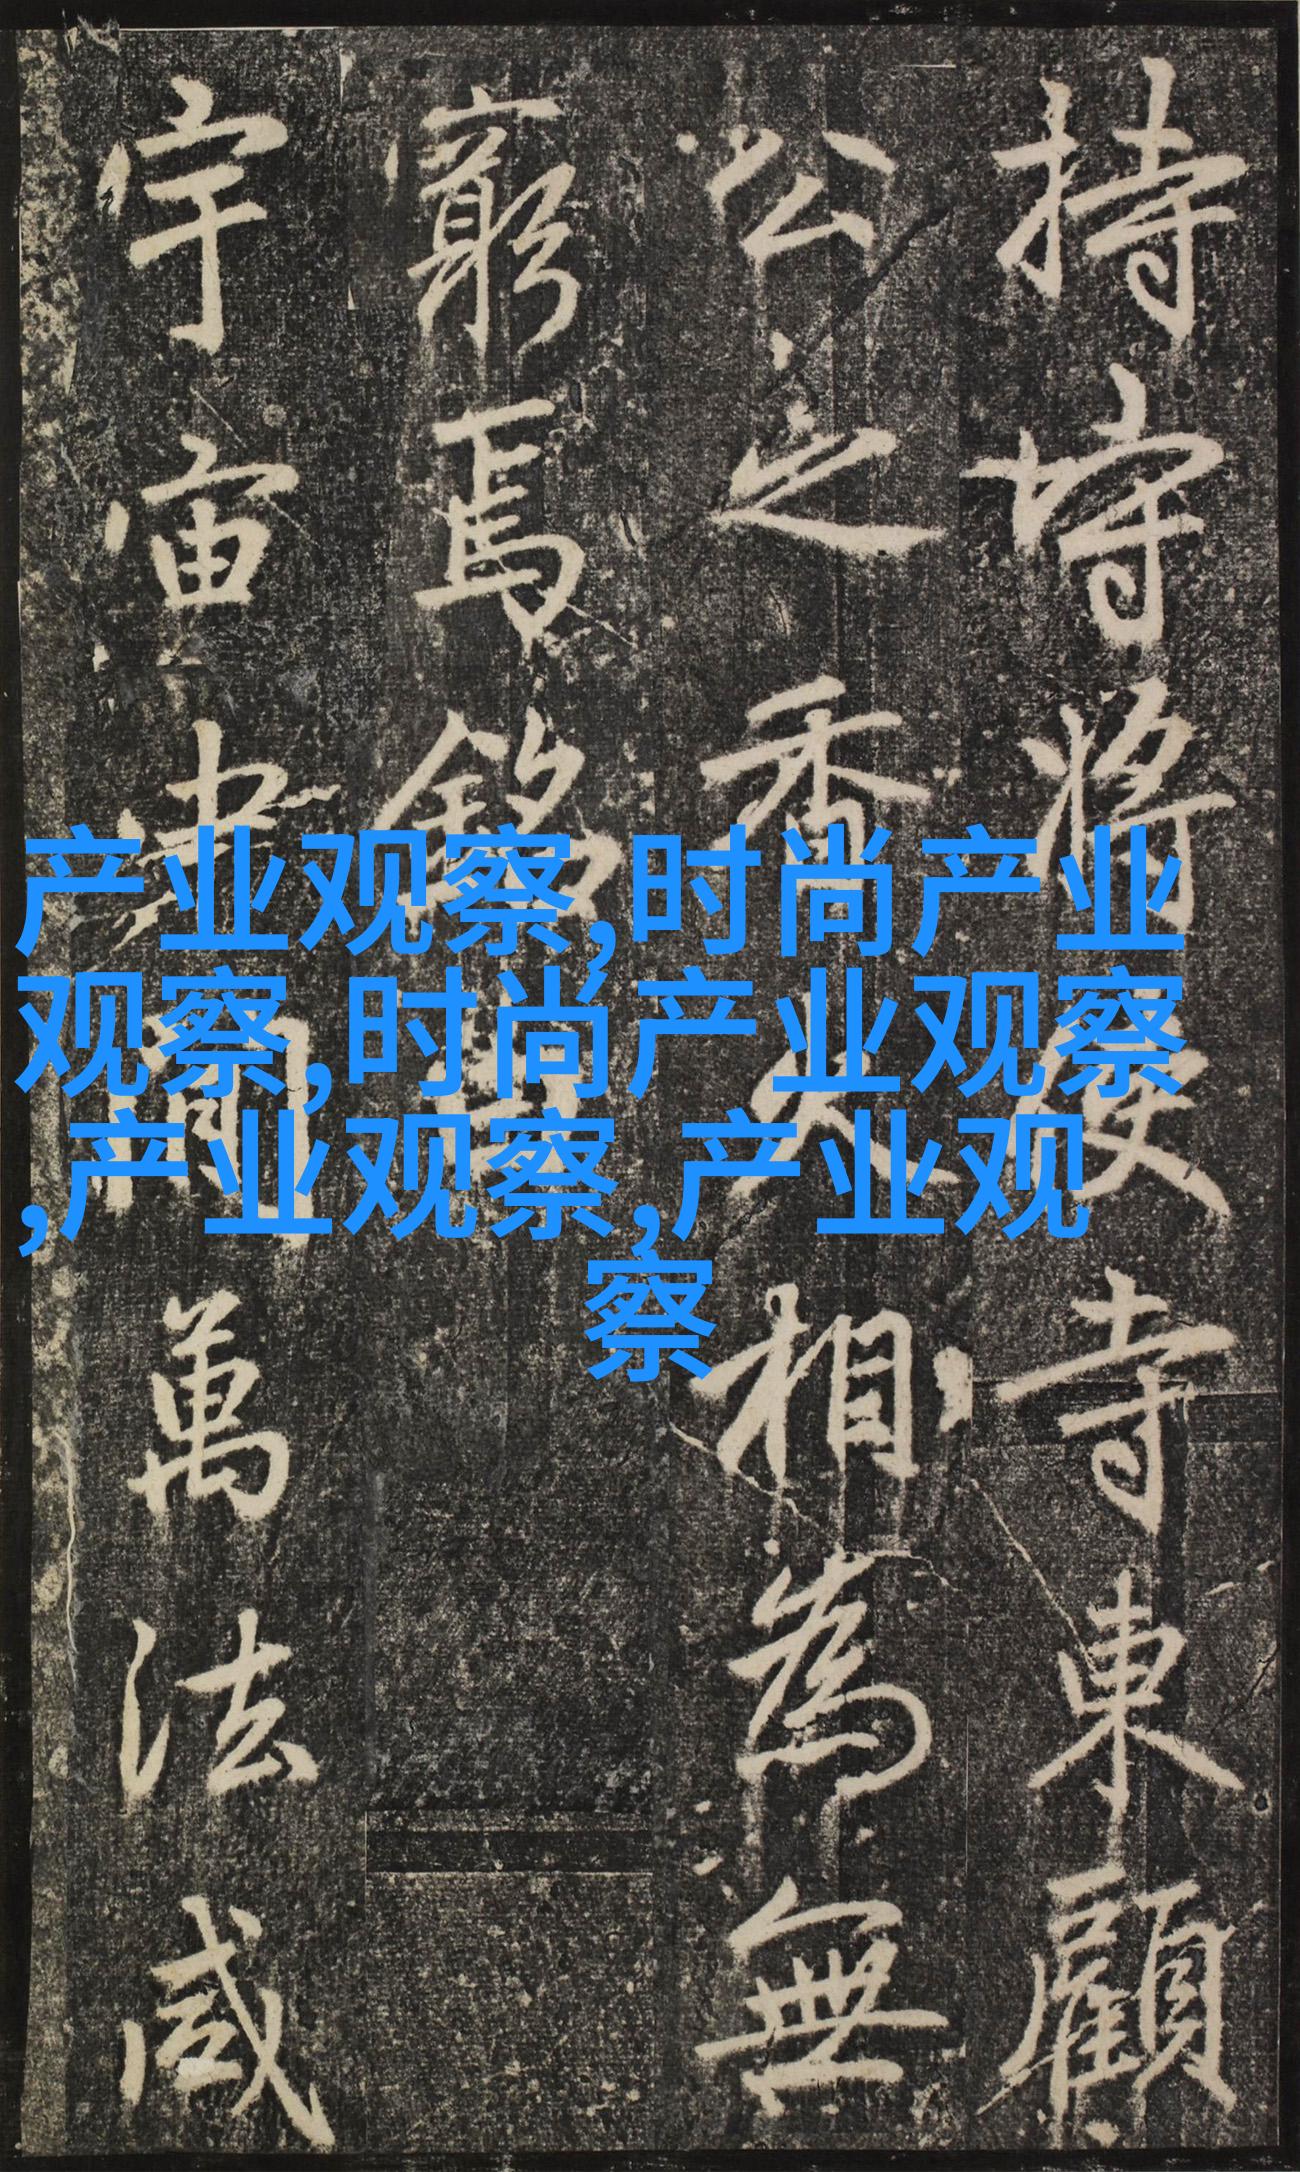 持持将使寺東顧
公之香火相為無
窮焉銘曰
宇宙之間萬法咸
产业观察,时尚产业
观察,时尚产业观察
,产业观察,产业观
察